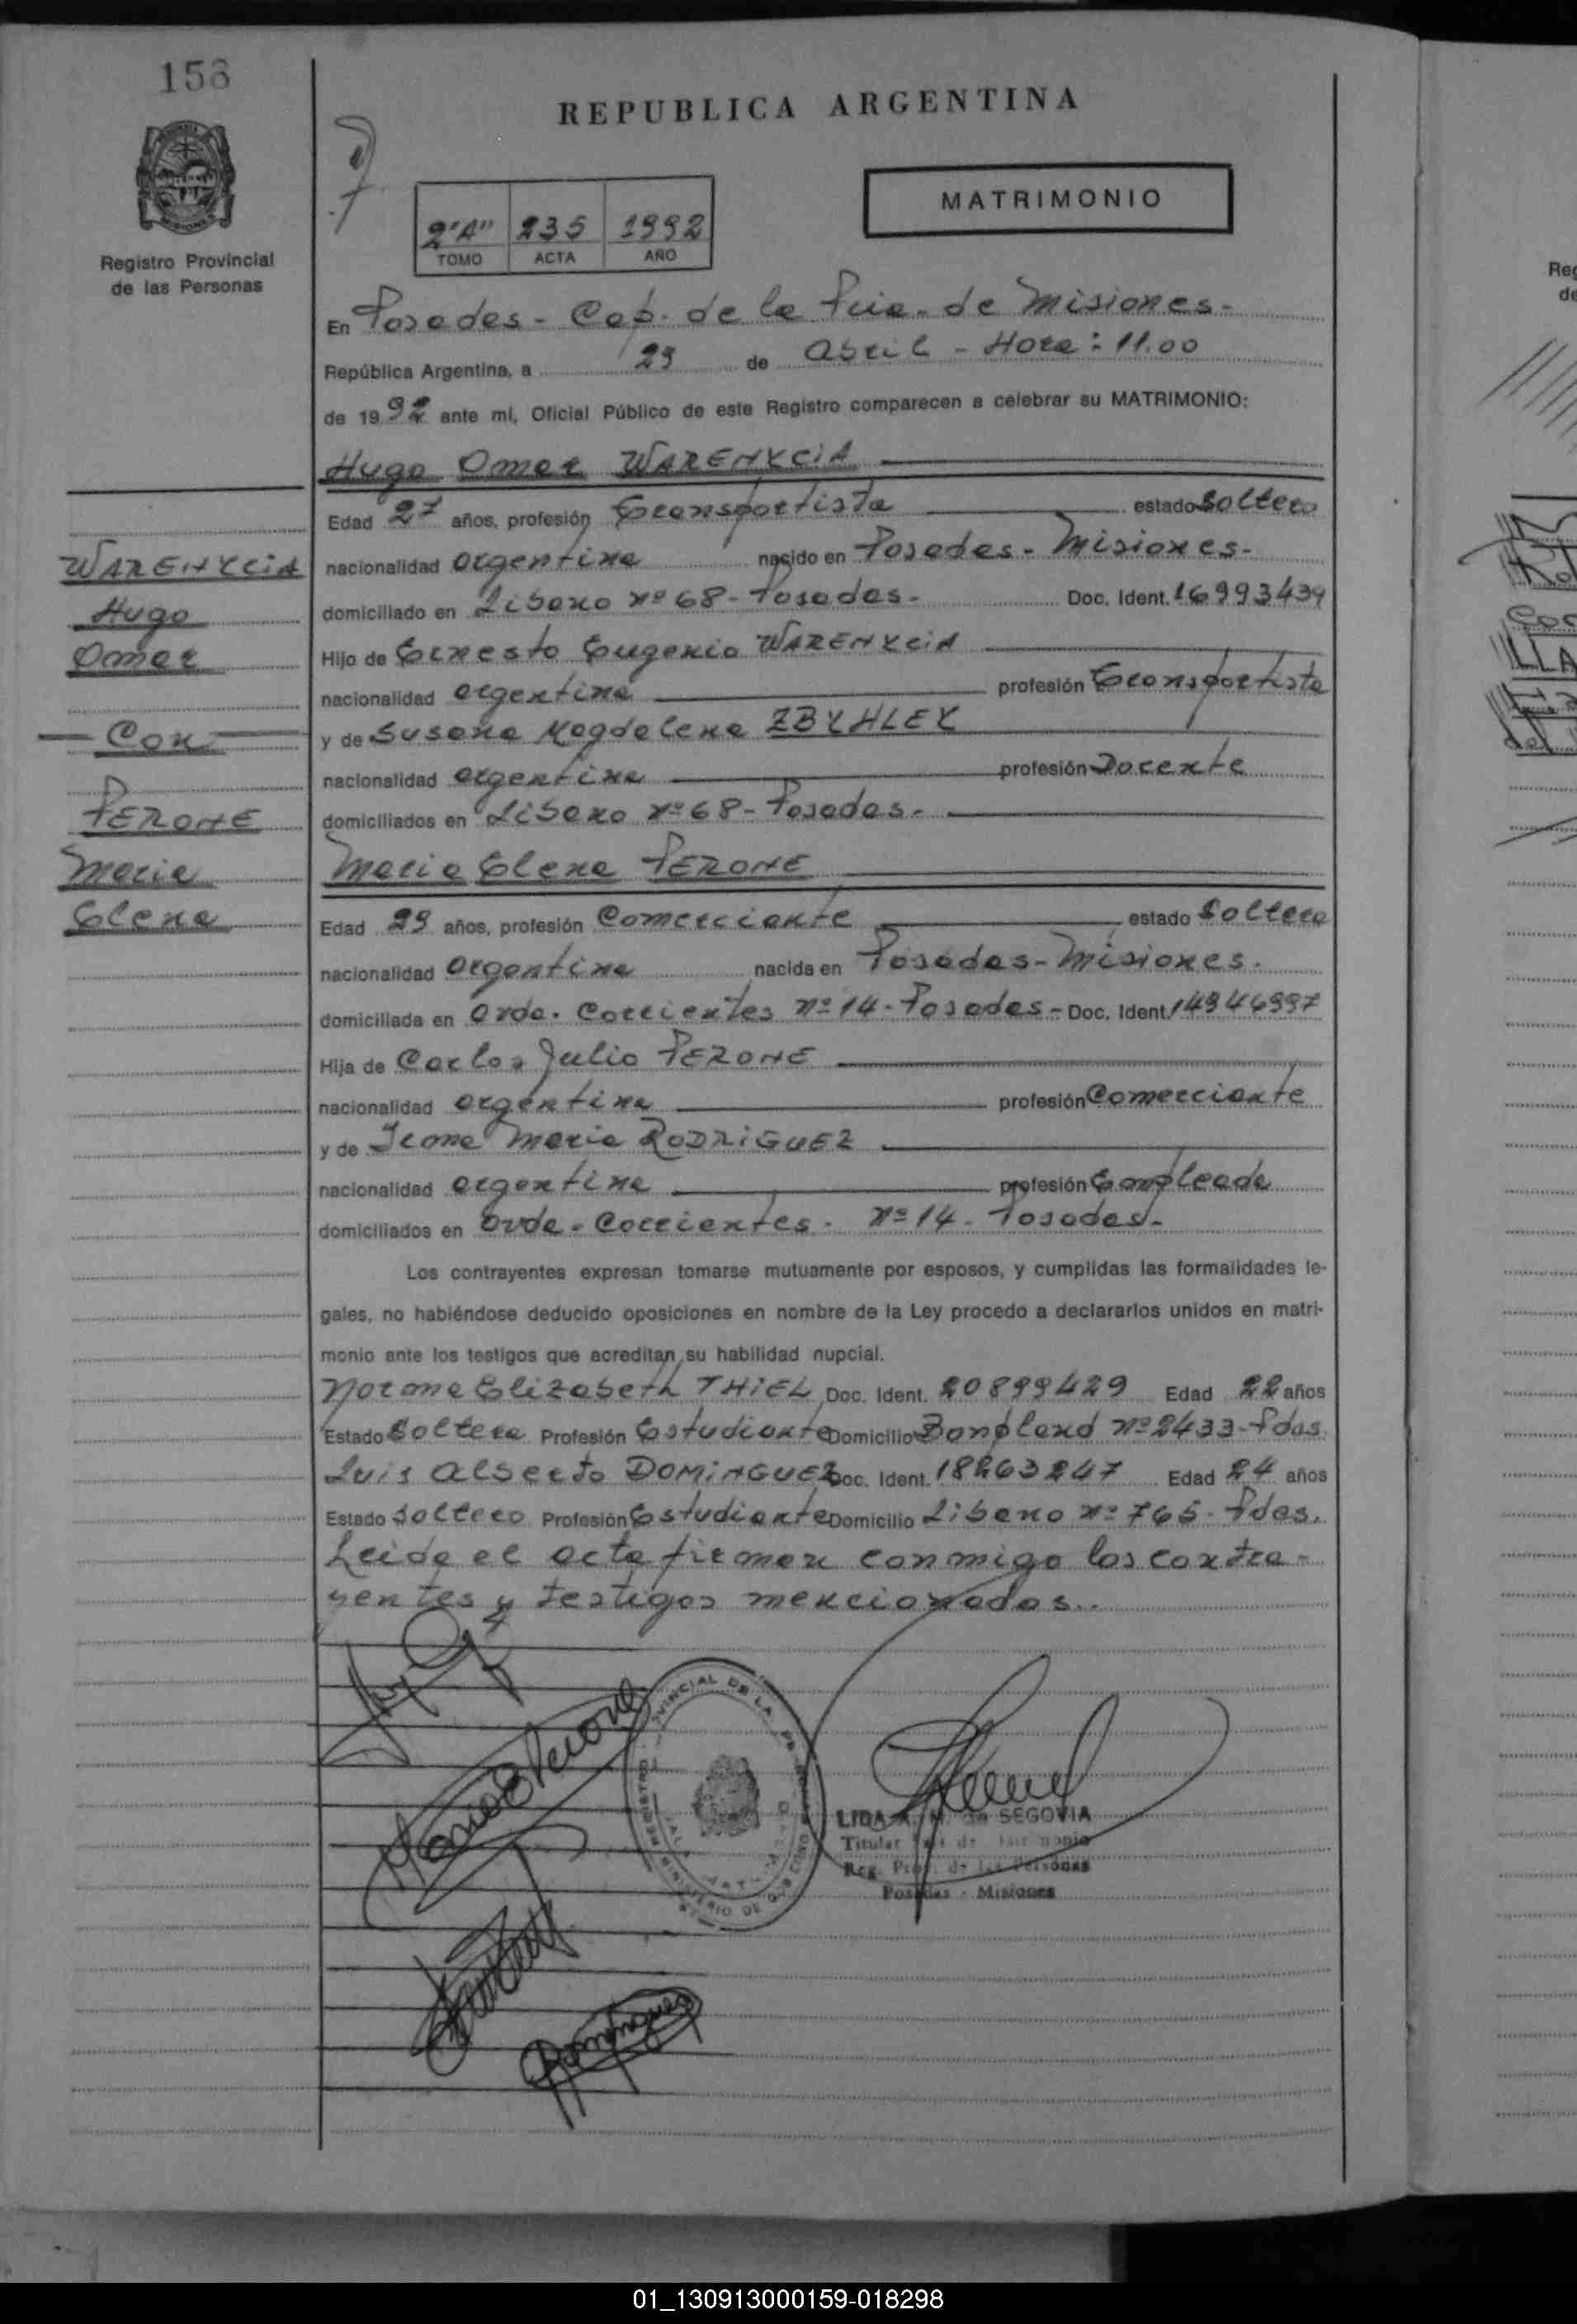 158
REPUBLICA ARGENTINA
MATRIMONIO
2"A" 235 1992
TOMO ACTA AÑO
Registro Provincial
de las Personas
En Posadas - Cap. de la Pcia. de Misiones -
República Argentina, a 29 de Abril - Hora: 11.00
de 1992 ante mi, Oficial Público de este Registro comparecen a celebrar su MATRIMONIO:
Hugo Omar WARENYCIA
Edad 27 años, profesión Transportista estado Soltero
nacionalidad argentina nacido en Posadas - Misiones -
domiciliado en Libano Nº 68 - Posadas - Doc. Ident. 16993439
Hijo de Ernesto Eugenio WARENYCIA
nacionalidad argentina profesión Transportista
y de Susana Magdalena ZBYHLEY
nacionalidad argentina profesión Docente
domiciliados en Libano Nº 68 - Posadas -
WARENYCIA
Hugo
Omar
Con
PERONE
Maria
Elena
Maria Elena PERONE
Edad 29 años, profesión Comerciante estado Soltera
nacionalidad argentina nacida en Posadas - Misiones.
domiciliada en Avda. Corrientes Nº 14 - Posadas - Doc. Ident. 14946997
Hija de Carlos Julio PERONE
nacionalidad argentina profesión Comerciante
y de Irma Maria RODRIGUEZ
nacionalidad argentina profesión Empleada
domiciliados en Avda. Corrientes. Nº 14 - Posadas -
Los contrayentes expresan tomarse mutuamente por esposos, y cumplidas las formalidades le-
gales, no habiéndose deducido oposiciones en nombre de la Ley procedo a declararlos unidos en matri-
monio ante los testigos que acreditan su habilidad nupcial.
Norma Elizabeth THIEL Doc. Ident. 20899429 Edad 22 años
Estado Soltera Profesión Estudiante Domicilio Bonpland Nº 2433 - Pdas.
Luis Alberto DOMINGUEZ Doc. Ident. 18263247 Edad 24 años
Estado Soltero Profesión Estudiante Domicilio Libano Nº 765 - Pdas.
Leida el acta firman conmigo los contra-
yentes y testigos mencionados.
Maria E Perone
Dominguez
LIDA M. de SEGOVIA
Titular de
Reg. Prov. de las Personas
Posadas - Misiones
01_130913000159-018298